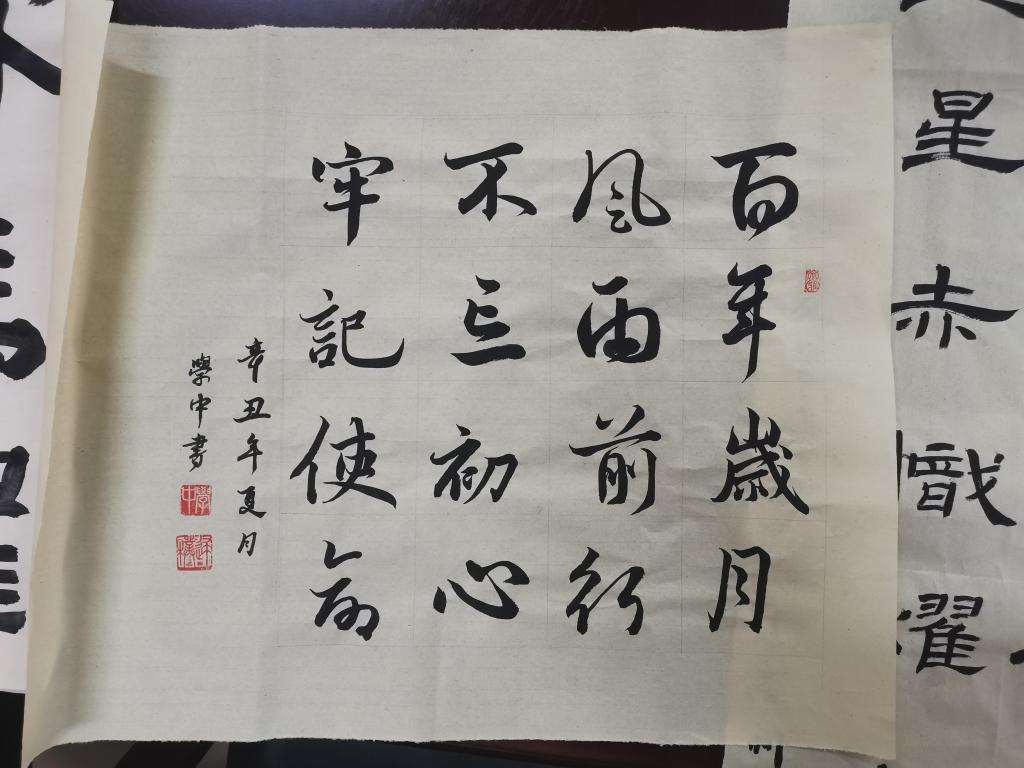 百年歲月
風雨前行
不忘初心
牢記使命
辛丑年夏月
學中書
學中
星赤幟耀